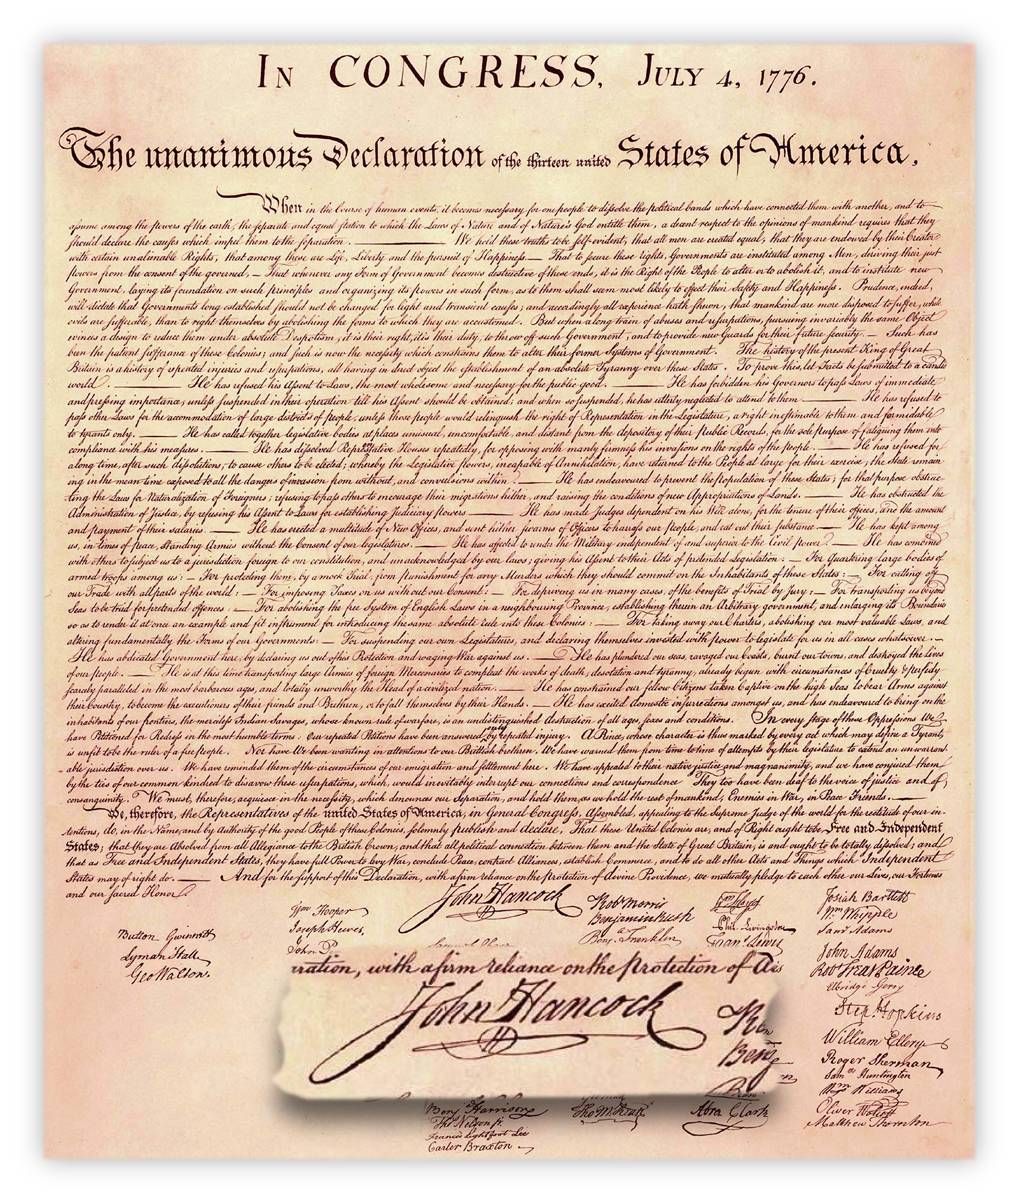 In CONGRESS, July 4, 1776.
The unanimous Declaration of the thirteen united States of America,
When in the Course of human events, it becomes necessary for one people to dissolve the political bands which have connected them with another, and to
assume among the powers of the earth, the separate and equal station to which the Laws of Nature and of Nature's God entitle them, a decent respect to the opinions of mankind requires that they
should declare the causes which impel them to the separation. We hold these truths to be self-evident, that all men are created equal, that they are endowed by their Creator
with certain unalienable Rights, that among these are Life, Liberty and the pursuit of Happiness.— That to secure these rights, Governments are instituted among Men, deriving their just
powers from the consent of the governed, — That whenever any Form of Government becomes destructive of these ends, it is the Right of the People to alter or to abolish it, and to institute new
Government, laying its foundation on such principles and organizing its powers in such form, as to them shall seem most likely to effect their Safety and Happiness. Prudence, indeed,
will dictate that Governments long established should not be changed for light and transient causes; and accordingly all experience hath shewn, that mankind are more disposed to suffer, while
evils are sufferable, than to right themselves by abolishing the forms to which they are accustomed. But when a long train of abuses and usurpations, pursuing invariably the same Object
evinces a design to reduce them under absolute Despotism, it is their right, it is their duty, to throw off such Government, and to provide new Guards for their future security.— Such has
been the patient sufferance of these Colonies; and such is now the necessity which constrains them to alter their former Systems of Government. The history of the present King of Great
Britain is a history of repeated injuries and usurpations, all having in direct object the establishment of an absolute Tyranny over these States. To prove this, let Facts be submitted to a candid
world. — He has refused his Assent to Laws, the most wholesome and necessary for the public good. — He has forbidden his Governors to pass Laws of immediate
and pressing importance, unless suspended in their operation till his Assent should be obtained; and when so suspended, he has utterly neglected to attend to them. — He has refused to
pass other Laws for the accommodation of large districts of people, unless those people would relinquish the right of Representation in the Legislature, a right inestimable to them and formidable
to tyrants only. — He has called together legislative bodies at places unusual, uncomfortable, and distant from the depository of their public Records, for the sole purpose of fatiguing them into
compliance with his measures. — He has dissolved Representative Houses repeatedly, for opposing with manly firmness his invasions on the rights of the people. — He has refused for
a long time, after such dissolutions, to cause others to be elected; whereby the Legislative powers, incapable of Annihilation, have returned to the People at large for their exercise; the State remain
ing in the mean time exposed to all the dangers of invasion from without, and convulsions within. — He has endeavoured to prevent the population of these States; for that purpose obstruc-
ting the Laws for Naturalization of Foreigners; refusing to pass others to encourage their migrations hither, and raising the conditions of new Appropriations of Lands. — He has obstructed the
Administration of Justice, by refusing his Assent to Laws for establishing Judiciary powers. — He has made Judges dependent on his Will alone, for the tenure of their offices, and the amount
and payment of their salaries. — He has erected a multitude of New Offices, and sent hither swarms of Officers to harass our people, and eat out their substance. — He has kept among
us, in times of peace, Standing Armies without the Consent of our legislatures. — He has affected to render the Military independent of and superior to the Civil power. — He has combined
with others to subject us to a jurisdiction foreign to our constitution, and unacknowledged by our laws; giving his Assent to their Acts of pretended Legislation: — For Quartering large bodies of
armed troops among us: — For protecting them, by a mock Trial, from punishment for any Murders which they should commit on the Inhabitants of these States: — For cutting off
our Trade with all parts of the world: — For imposing Taxes on us without our Consent: — For depriving us in many cases, of the benefits of Trial by Jury: — For transporting us beyond
Seas to be tried for pretended offences — For abolishing the free System of English Laws in a neighbouring Province, establishing therein an Arbitrary government, and enlarging its Boundaries
so as to render it at once an example and fit instrument for introducing the same absolute rule into these Colonies: — For taking away our Charters, abolishing our most valuable Laws, and
altering fundamentally the Forms of our Governments: — For suspending our own Legislatures, and declaring themselves invested with power to legislate for us in all cases whatsoever. —
He has abdicated Government here, by declaring us out of his Protection and waging War against us. — He has plundered our seas, ravaged our Coasts, burnt our towns, and destroyed the Lives
of our people. — He is at this time transporting large Armies of foreign Mercenaries to compleat the works of death, desolation and tyranny, already begun with circumstances of Cruelty & perfidy
scarcely paralleled in the most barbarous ages, and totally unworthy the Head of a civilized nation. — He has constrained our fellow Citizens taken Captive on the high Seas to bear Arms against
their Country, to become the executioners of their friends and Brethren, or to fall themselves by their Hands. — He has excited domestic insurrections amongst us, and has endeavoured to bring on the
inhabitants of our frontiers, the merciless Indian Savages, whose known rule of warfare, is an undistinguished destruction of all ages, sexes and conditions. In every stage of these Oppressions We
have Petitioned for Redress in the most humble terms: Our repeated Petitions have been answered only by repeated injury. A Prince, whose character is thus marked by every act which may define a Tyrant,
is unfit to be the ruler of a free people. Nor have We been wanting in attentions to our Brittish brethren. We have warned them from time to time of attempts by their legislature to extend an unwarrant-
able jurisdiction over us. We have reminded them of the circumstances of our emigration and settlement here. We have appealed to their native justice and magnanimity, and we have conjured them
by the ties of our common kindred to disavow these usurpations, which, would inevitably interrupt our connections and correspondence They too have been deaf to the voice of justice and of
consanguinity. We must, therefore, acquiesce in the necessity, which denounces our Separation, and hold them, as we hold the rest of mankind, Enemies in War, in Peace Friends. —
We, therefore, the Representatives of the united States of America, in General Congress, Assembled, appealing to the Supreme Judge of the world for the rectitude of our in-
tentions, do, in the Name, and by Authority of the good People of these Colonies, solemnly publish and declare, That these United Colonies are, and of Right ought to be Free and Independent
States; that they are Absolved from all Allegiance to the British Crown, and that all political connection between them and the State of Great Britain, is and ought to be totally dissolved; and
that as Free and Independent States, they have full Power to levy War, conclude Peace, contract Alliances, establish Commerce, and to do all other Acts and Things which Independent
States may of right do. — And for the support of this Declaration, with a firm reliance on the protection of divine Providence, we mutually pledge to each other our Lives, our Fortunes
and our sacred Honor.
John Hancock
Button Gwinnett
Lyman Hall
Geo Walton.
Wm Hooper
Joseph Hewes,
John P
Robt Morris
Benjamin Rush
Benj. Franklin
Wm Floyd
Phil. Livingston
Frans. Lewis
Josiah Bartlett
Wm Whipple
Saml Adams
John Adams
Robt Treat Paine
Elbridge Gerry
Step. Hopkins
William Ellery
Roger Sherman
Saml Huntington
Wm Williams
Oliver Wolcott
Matthew Thornton
ration, with a firm reliance on the protection of
John Hancock
Benj
Benj Harrison
Thos Nelson jr.
Francis Lightfoot Lee
Carter Braxton
Tho M:Kean
Abra Clark